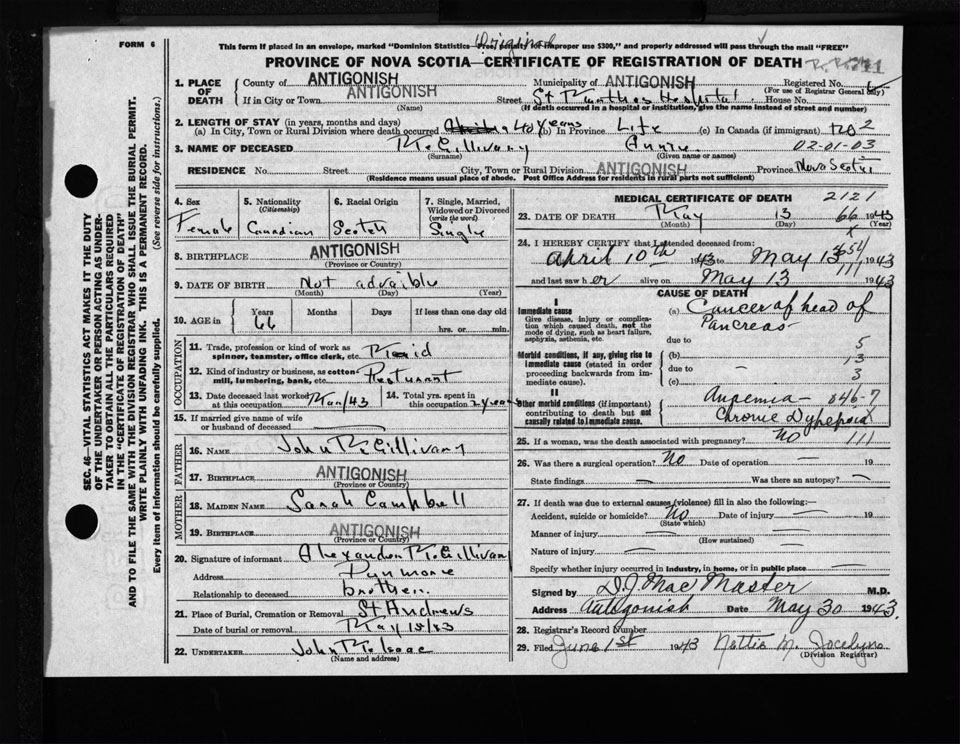 Original
FORM 6
This form if placed in an envelope, marked "Dominion Statistics—Free, penalty for improper use $300," and properly addressed will pass through the mail "FREE"
PROVINCE OF NOVA SCOTIA—CERTIFICATE OF REGISTRATION OF DEATH
1. PLACE OF DEATH
County of ANTIGONISH Municipality of ANTIGONISH Registered No.
(For use of Registrar General only)
If in City or Town ANTIGONISH Street St Marthas Hospital House No.
(Name) (If death occurred in a hospital or institution, give the name instead of street and number)
2. LENGTH OF STAY (in years, months and days)
(a) In City, Town or Rural Division where death occurred 40 years (b) In Province Life (c) In Canada (if immigrant) no 2
3. NAME OF DECEASED McGillivary Annie 02-01-03
(Surname) (Given name or names)
RESIDENCE No. Street City, Town or Rural Division ANTIGONISH Province Nova Scotia
(Residence means usual place of abode. Post Office Address for residents in rural parts not sufficient)
4. Sex
Female
5. Nationality
(Citizenship)
Canadian
6. Racial Origin
Scotch
7. Single, Married, Widowed or Divorced
(write the word)
Single
8. BIRTHPLACE ANTIGONISH
(Province or Country)
9. DATE OF BIRTH Not advaible
(Month) (Day) (Year)
10. AGE in
Years Months Days If less than one day old
66 hrs. or min.
OCCUPATION
11. Trade, profession or kind of work as
spinner, teamster, office clerk, etc. Maid
12. Kind of industry or business, as cotton
mill, lumbering, bank, etc. Resturant
13. Date deceased last worked
at this occupation Mar/43
14. Total yrs. spent in
this occupation 2 years
15. If married give name of wife
or husband of deceased
FATHER
16. NAME John McGillivary
17. BIRTHPLACE ANTIGONISH
(Province or Country)
MOTHER
18. MAIDEN NAME Sarah Campbell
19. BIRTHPLACE ANTIGONISH
(Province or Country)
20. Signature of informant Alexander McGillivary
Address Dynmore
Relationship to deceased brother
21. Place of Burial, Cremation or Removal St Andrews
Date of burial or removal May 15/43
22. UNDERTAKER John McIsaac
(Name and address)
MEDICAL CERTIFICATE OF DEATH 2121
23. DATE OF DEATH May 13 66 1943
(Month) (Day) (Year)
24. I HEREBY CERTIFY that I attended deceased from:
April 10th 1943 to May 13 1943
and last saw her alive on May 13 111 1943
CAUSE OF DEATH
I
Immediate cause
Give disease, injury or complication which caused death, not the mode of dying, such as heart failure, asphyxia, asthenia, etc.
(a) Cancer of head of
Pancreas
due to 5
Morbid conditions, if any, giving rise to immediate cause (stated in order proceeding backwards from immediate cause).
(b) 13
due to 3
(c)
II
Other morbid conditions (if important) contributing to death but not causally related to immediate cause.
Anpemia — 046-7
Chronic Dyspepsia
25. If a woman, was the death associated with pregnancy? no 111
26. Was there a surgical operation? No Date of operation — 19
State findings Was there an autopsy? —
27. If death was due to external causes (violence) fill in also the following:—
Accident, suicide or homicide? No Date of injury — 19
(State which)
Manner of injury
(How sustained)
Nature of injury
Specify whether injury occurred in industry, in home, or in public place
Signed by D.J. MacMaster M.D.
Address Antigonish Date May 30 1943.
28. Registrar's Record Number
29. Filed June 1st 1943 Nettie M. Jocelyn
(Division Registrar)
SEC. 46—VITAL STATISTICS ACT MAKES IT THE DUTY
OF THE UNDERTAKER OR PERSON ACTING AS UNDERTAKER TO OBTAIN ALL THE PARTICULARS REQUIRED
IN THE "CERTIFICATE OF REGISTRATION OF DEATH"
AND TO FILE THE SAME WITH THE DIVISION REGISTRAR WHO SHALL ISSUE THE BURIAL PERMIT.
WRITE PLAINLY WITH UNFADING INK. THIS IS A PERMANENT RECORD.
Every item of information should be carefully supplied. (See reverse side for instructions.)